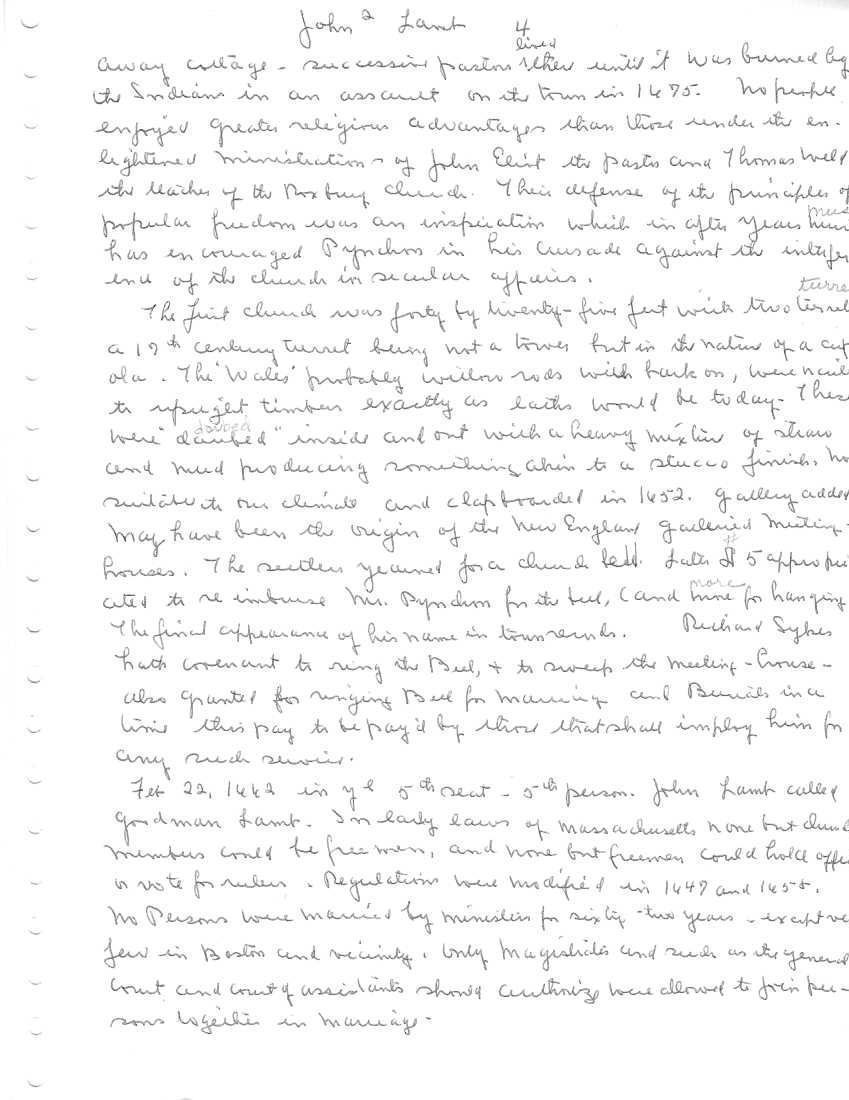 John 2 Lamb 4
lived
away cottage - successive pastors there until it was burned by
the Indians in an assault on the town in 1675. No people
enjoyed greater religious advantages than those under the en-
lightened ministrations of John Eliot the pastor and Thomas Weld
the teacher of the Roxbury church. Their defense of the principles of
popular freedom was an inspiration which in after years must
has encouraged Pynchon in his crusade against the interfer
ence of the church in secular affairs.
turre
The first church was forty by twenty-five feet with two turret
a 17th century turret being not a tower but in the nature of a cup
ola. The 'Wales' probably willow rods with bark on, were nail
to upright timbers exactly as laths would be today. These
daubed
were "daubed" inside and out with a heavy mixture of straw
and mud producing something akin to a stucco finish. No
suitable to our climate and clapboarded in 1652. Gallery added
may have been the origin of the New England galleried meeting-
houses. The settlers yearned for a church bell. Later # 5 appropri
more
ated to reimburse Mr. Pynchon for the bell, (and more for hanging
The final appearance of his name in town records. Richard Sykes
hath covenant to ring the Bell, & to sweep the meeting-house -
also granted for ringing Bell for marriag and Burials in a
time this pay to be pay'd by those that shall imploy him for
any such service.
Feb 22, 1662 in ye 5th seat - 5th person. John Lamb called
Goodman Lamb. In early laws of Massachusetts none but church
members could be freemen, and none but freemen could hold offi
or vote for rulers. Regulations were modified in 1647 and 1655.
No Persons were married by ministers for sixty-two years - except ve
few in Boston and vicinity. Only magistrates and such as the general
court and court of assistants should authorize were allowed to join per-
sons together in marriage -